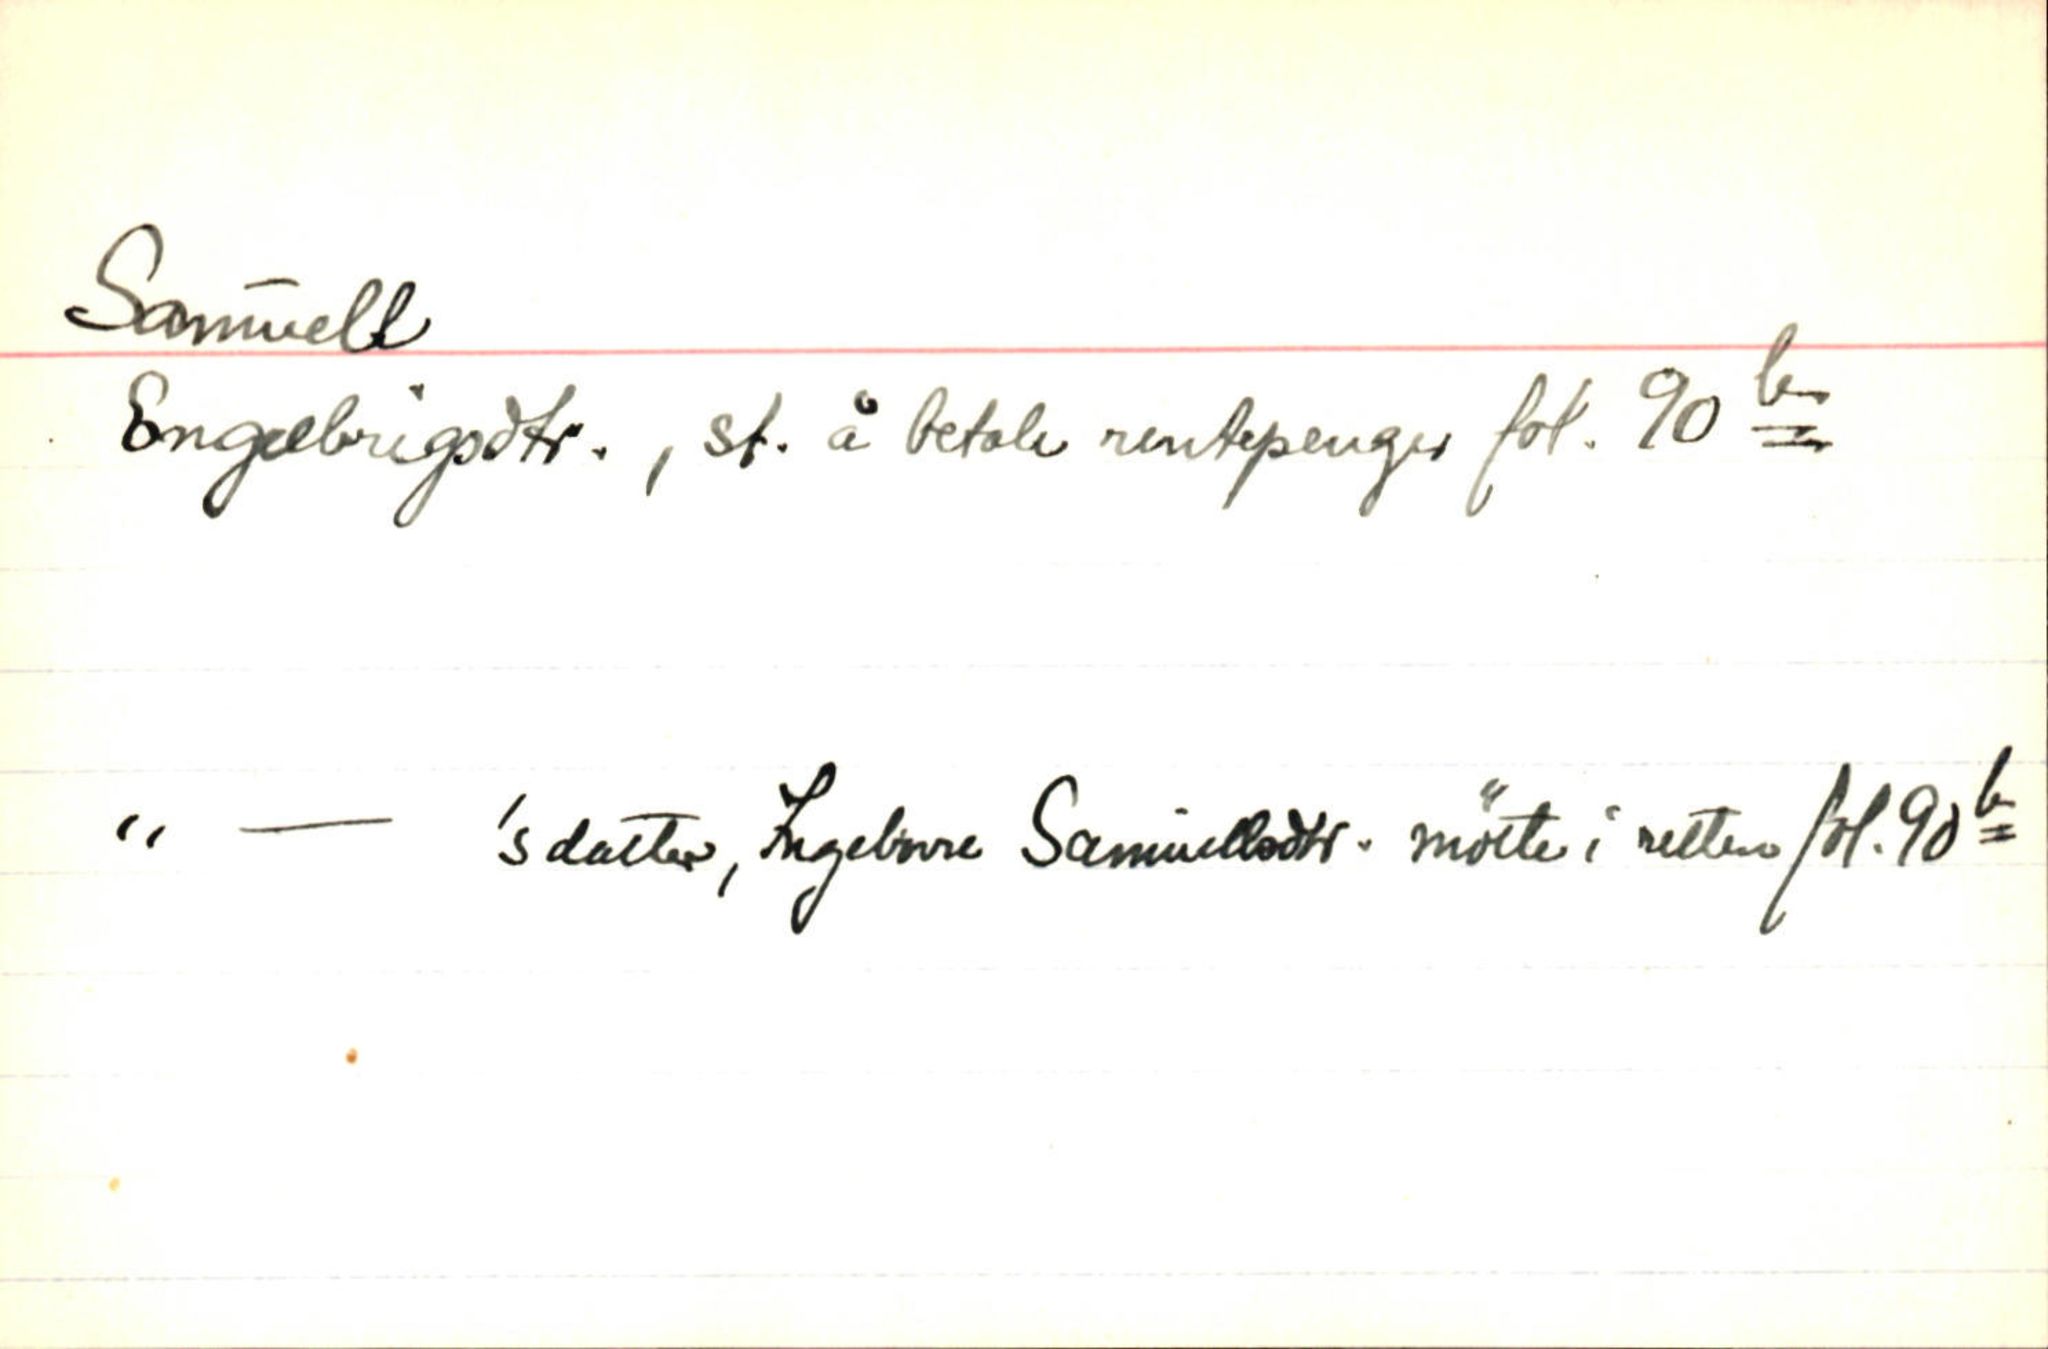 Samuell
Engelbrigsdtr., st. å betale rentepenger fol. 90 b
" — 's datter, Ingeborre Samuellsdtr. mötte i retten fol. 90 b